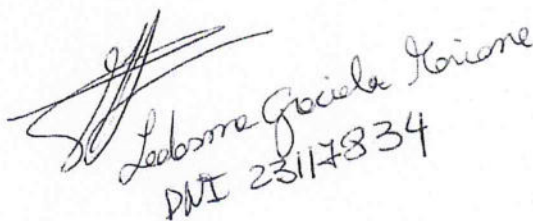 Ledesma Graciela Mariana
DNI 23117834